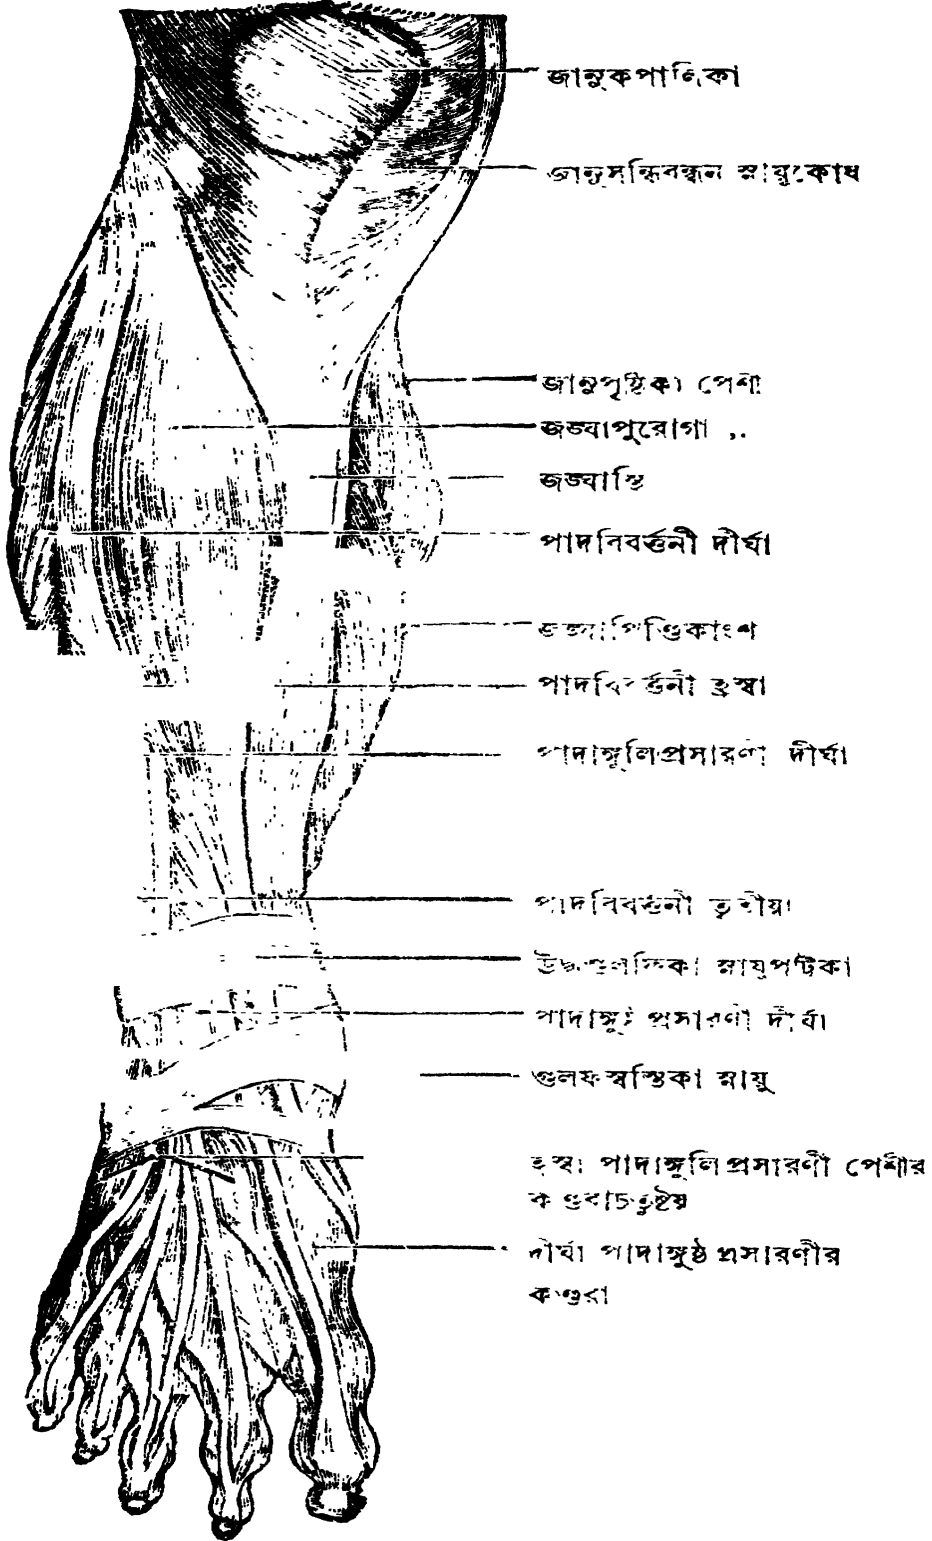 জানুকপালিকা
জানুসন্ধিবন্ধন স্নায়ুকোষ
জানুপৃষ্ঠিকা পেশী
জঙ্ঘাপুরোগা ,,
জঙ্ঘাস্থি
পাদবিবর্ত্তনী দীর্ঘা
জঙ্ঘাপিণ্ডিকাংশ
পাদবিবর্ত্তনী হ্রস্বা
পাদাঙ্গুলিপ্রসারণী দীর্ঘা
পাদবিবর্ত্তনী তৃতীয়া
স্নায়ুপট্টিকা
প্রসারণী দীর্ঘা
গুলফস্বস্তিকা স্নায়ু
হ্রস্বা পাদাঙ্গুলিপ্রসারণী পেশীর
কণ্ডরাচতুষ্টয়
দীর্ঘা পাদাঙ্গুষ্ঠ প্রসারণীর
কণ্ডরা